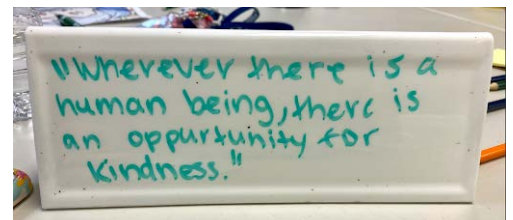 "Wherever there is a
human being, there is
an oppurtunity for
kindness."